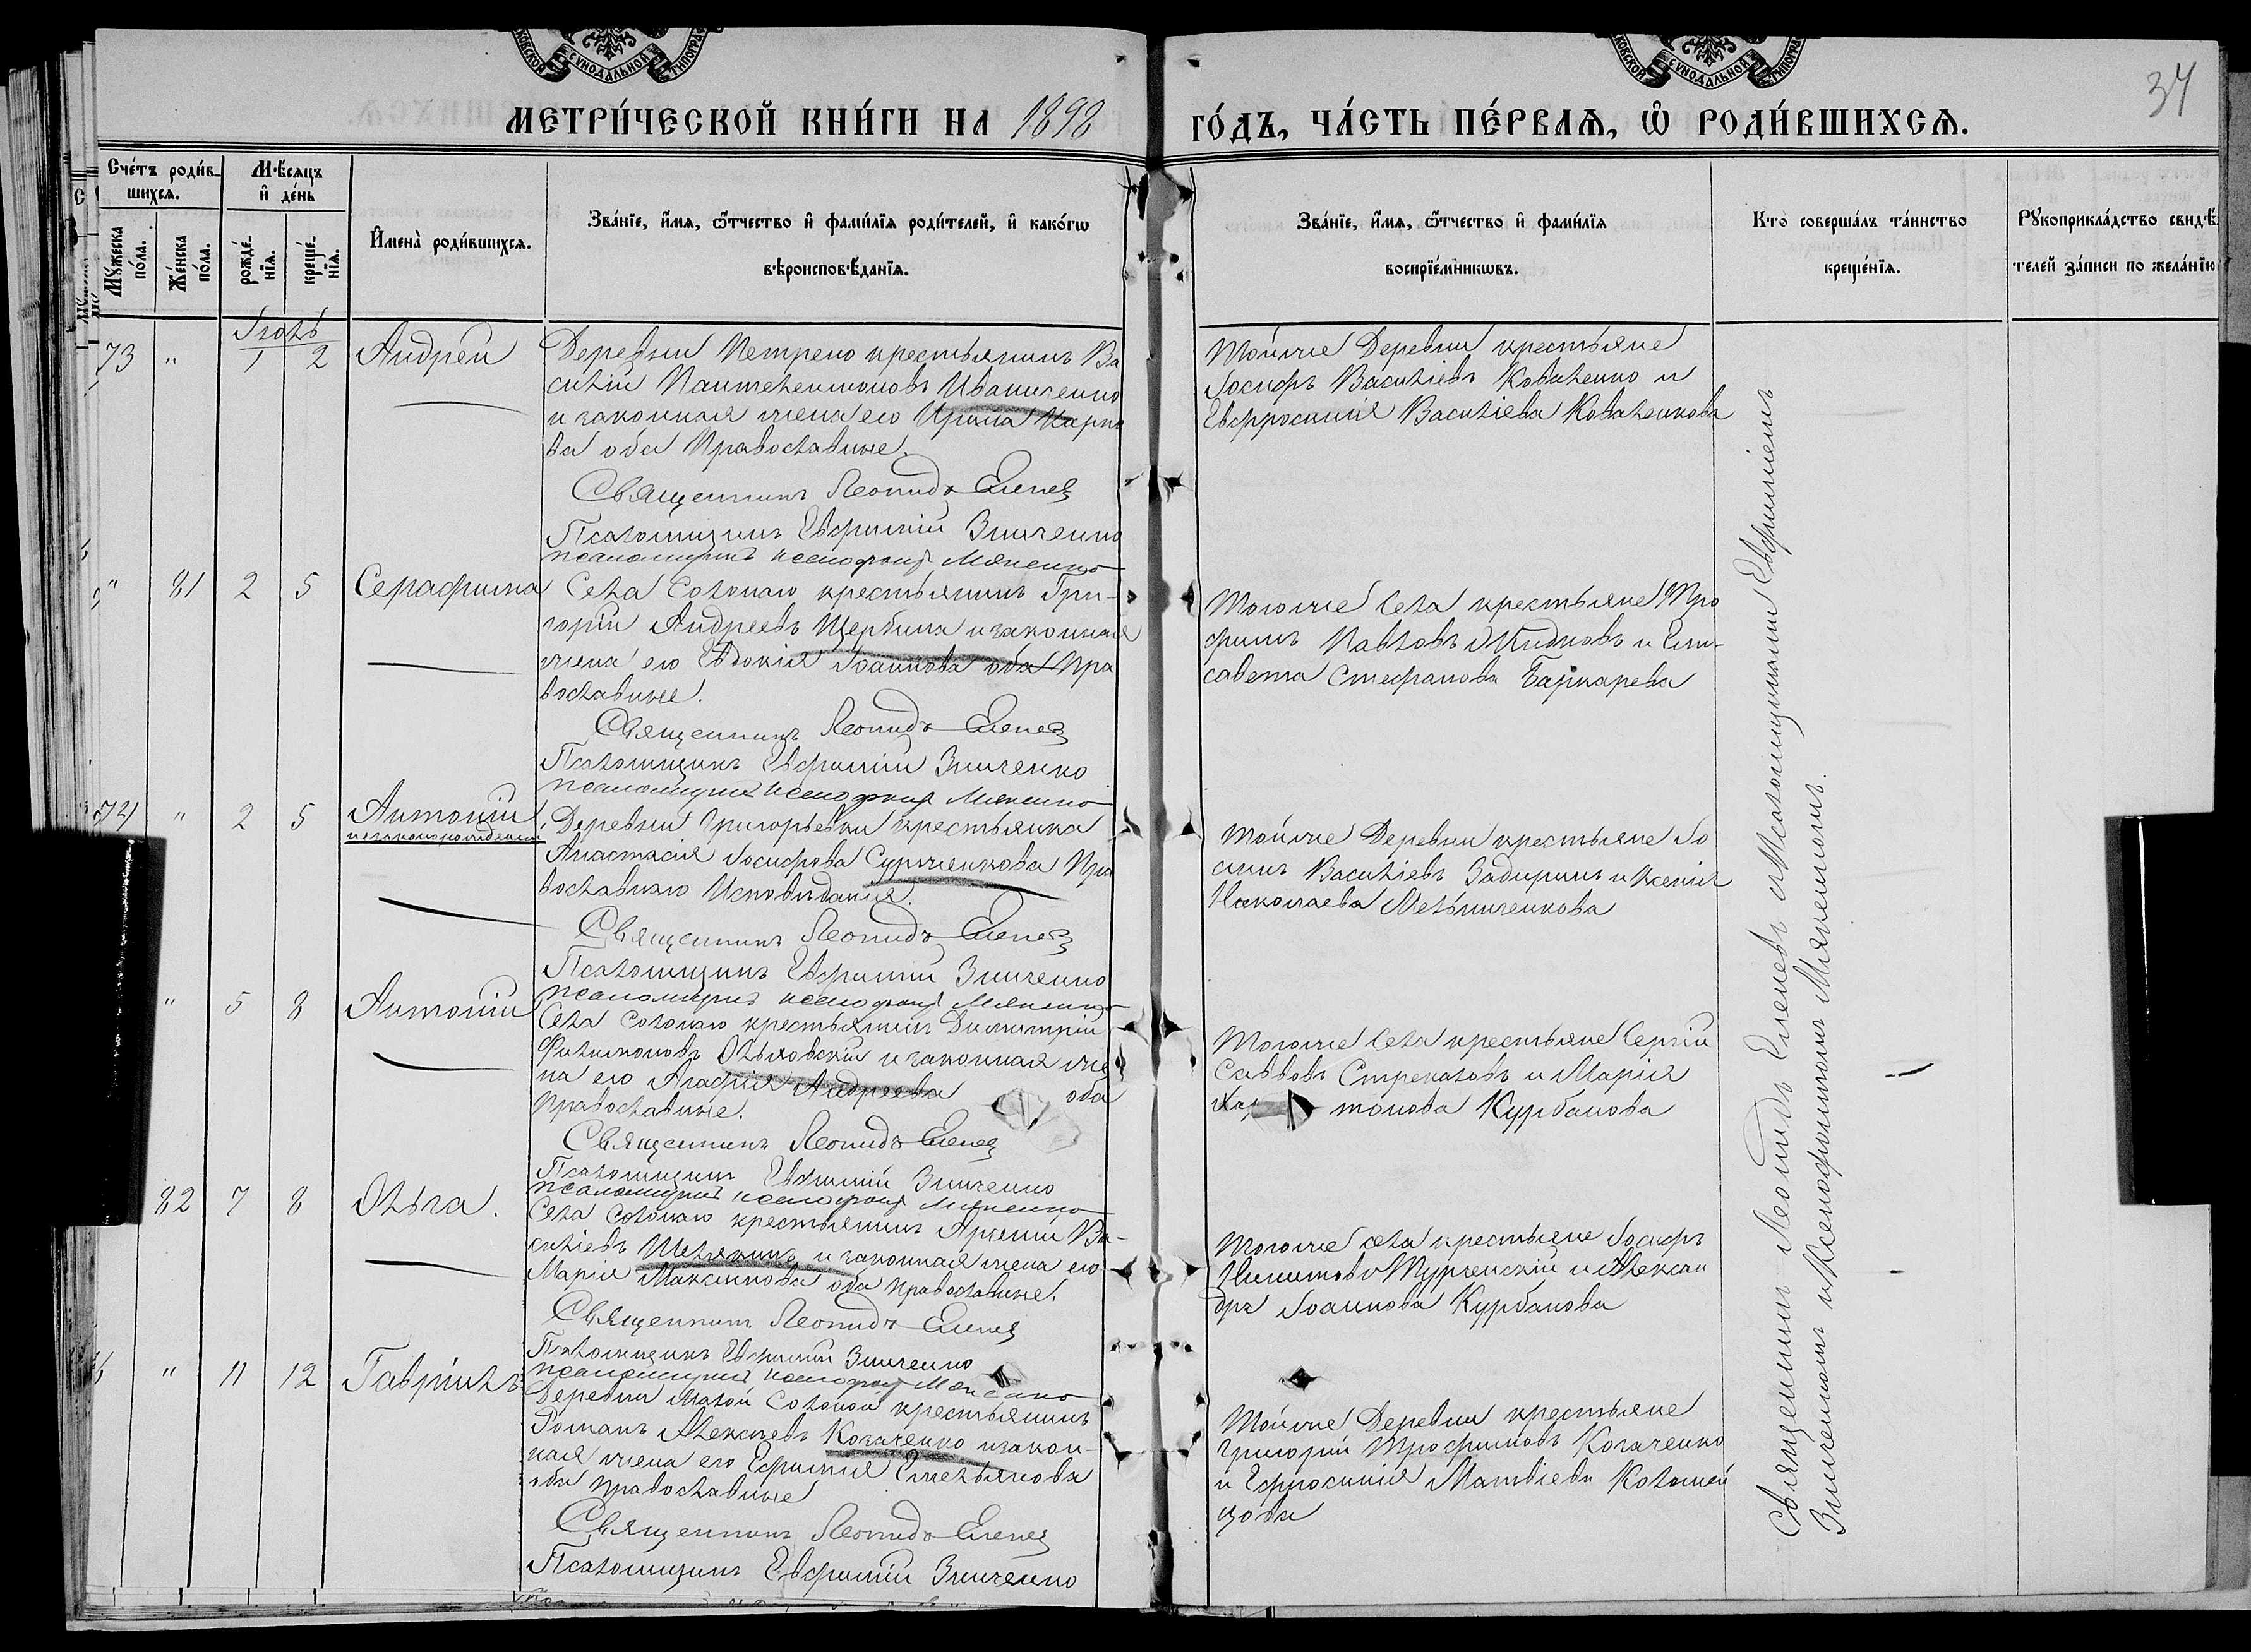 МЕТРИ́ЧЕСКОЙ КНИ́ГИ НА 1898
ГО́ДЪ, ЧА́СТЬ ПЕ́РВАѦ, Ѡ҆ РОДИ́ВШИХСѦ.
34
Сче́тъ роди́в-
шихсѧ.
Мѣ́сѧцъ
и҆ де́нь
Мꙋ́жеска
по́ла.
Же́нска
по́ла.
рожде́-
нїѧ.
креще́-
нїѧ.
И҆мена̀ роди́вшихсѧ.
Зва́нїе, и҆́мѧ, ѻ҆́тчество и҆ фами́лїѧ роди́телей, и҆ како́гѡ
вѣроисповѣ́данїѧ.
Зва́нїе, и҆́мѧ, ѻ҆́тчество и҆ фами́лїѧ
воспрїе́мникѡвъ.
Кто̀ соверша́лъ та́инство
креще́нїѧ.
Рꙋкоприкла́дство свидѣ́-
телей за́писи по жела́нїю
Іюль
73 " 1 2 Андрей
Деревни Петрено крестьянинъ Ва
силій Пантелеимоновъ Иваниченко
и законная жена его Ирина Карпо
ва оба Православные.
Священникъ Леонидъ Еленев
Псаломщикъ Евфимій Зинченко
псаломщикъ Ксенофонт Мякенько
Тойже Деревни крестьяне
Іосифъ Василіевъ Коваленко и
Евфросинія Василіева Коваленкова
" 81 2 5 Серафима
Села Солонаго крестьянинъ Гри-
горій Андреевъ Щербина и законная
жена его Евдокія Іоаннова оба Пра
вославные.
Священникъ Леонидъ Еленев
Псаломщикъ Евфимій Зинченко
псаломщикъ Ксенофонт Мякенько
Тогоже Села крестьяне Тро
фимъ Павловъ и Ели-
савета Стефанова
74 " 2 5 Антоній
незаконорожденный
Деревни Григорьевки крестьянка
Анастасія Іосифова Сурженкова Пра
вославнаго Исповѣданія.
Священникъ Леонидъ Еленев
Псаломщикъ Евфимій Зинченко
псаломщикъ Ксенофонт Мякенько
Тойже Деревни крестьяне Іо
Василіевъ Задиринъ и Ксенія
Николаева Мельниченкова
" 5 8 Антоній
Села Солонаго крестьянинъ Димитрій
Филимоновъ Ольховскій и законная же
на его Агафія Андреева оба
православные.
Священникъ Леонидъ Еленев
Псаломщикъ Евфимій Зинченко
псаломщикъ Ксенофонт Мякенько
Тогоже Села крестьяне Сергій
Саввовъ Стрекаловъ и Марія
Хар тонова Курбанова
82 7 8 Ольга.
Села Солонаго крестьянинъ Арсеній Ва-
силіевъ Шелякинъ и законная жена его
Марія Максимова оба православные.
Священникъ Леонидъ Еленев
Псаломщикъ Евфимій Зинченко
псаломщикъ Ксенофонт Мякенько
Тогоже села крестьяне Іосифъ
Никитовъ и Алексан
дра Іоаннова Курбанова
" 11 12 Гавріилъ
Деревни Малой Солоной крестьянинъ
Романъ Алексѣевъ Козаченко и закон-
ная жена его Ефимія Емельянова
оба православные
Священникъ Леонидъ Еленев
Псаломщикъ Евфимій Зинченко
Тойже Деревни крестьяне
Григорій Трофимовъ Козаченко
и Ефросинія Матвіева Коломой
цова
Священникъ Леонидъ Еленевъ съ Псаломщиками Евфиміемъ
Зинченкомъ и Ксенофонтомъ Мякенькомъ.